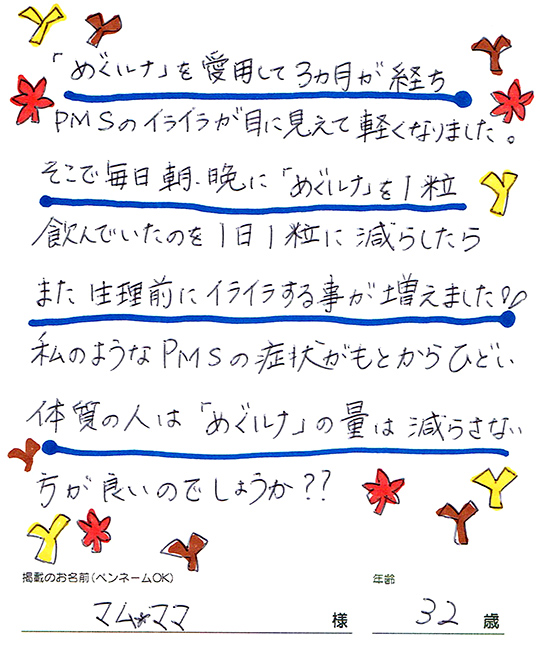 「めぐルナ」を愛用して3ヵ月が経ち
PMSのイライラが目に見えて軽くなりました。
そこで毎日朝、晩に「めぐルナ」を1粒
飲んでいたのを1日1粒に減らしたら
また生理前にイライラする事が増えました!!
私のようなPMSの症状がもとからひどい
体質の人は「めぐルナ」の量は減らさない
方が良いのでしょうか??
掲載のお名前(ペンネームOK)
年齢
マム*ママ 様 32 歳